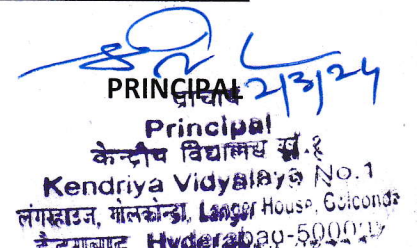 PRINCIPAL 2/3/24
प्राचार्य
Principal
केन्द्रीय विद्यालय सं.१
Kendriya Vidyalaya No.1
लंगरहाउज, गोलकोन्डा, Langer House, Golconda
हैदराबाद Hyderabad-5000